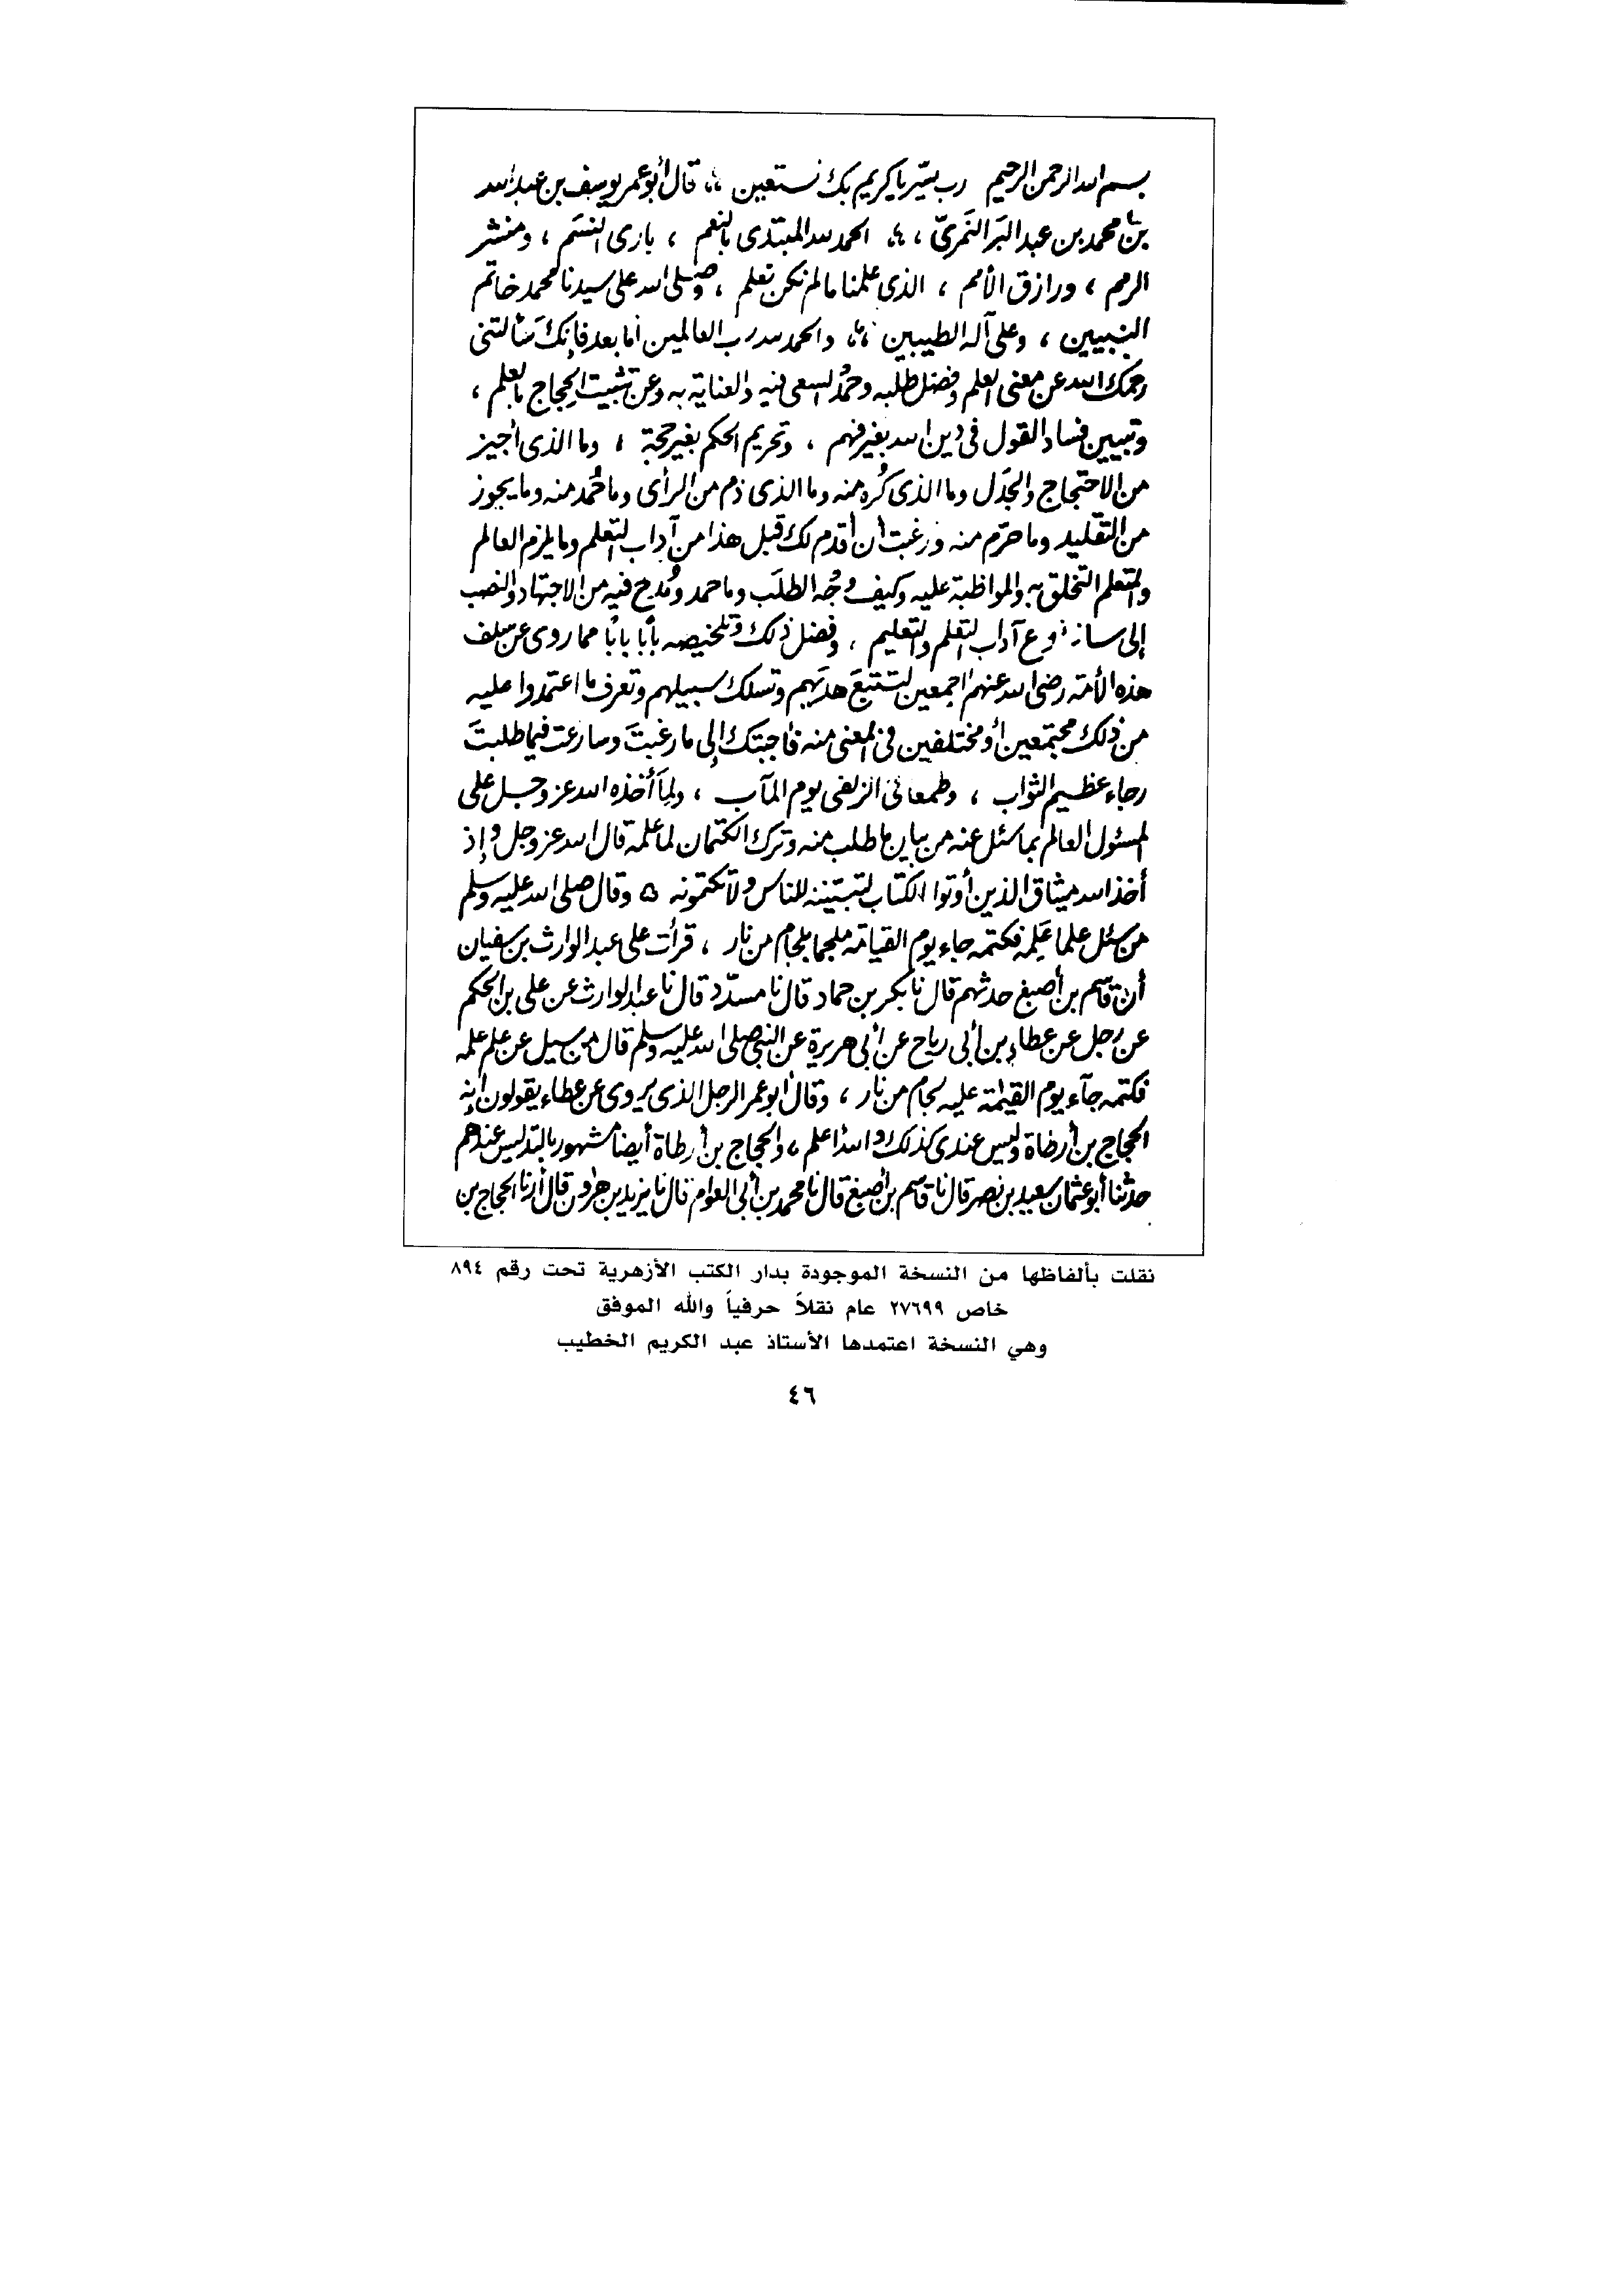 بسم الله الرحمن الرحيم رب يسّر يا كريم بك نستعين ،، قال أبو عمر يوسف بن عبد الله
بن محمد بن عبد البَر النَمريّ ،،، الحمد لله المبتدى بالنعم ، بارى النسَم ، ومنشر
الرمم ، ورازق الأمم ، الذى علمنا ما لم نكن نعلم ، وصلى الله على سيدنا محمد خاتم
النبيين ، وعلى آله الطيبين ،،، والحمد لله رب العالمين أما بعد فإنكَ سألتنى
رحمك الله عن معنى العلم وفضل طلبه وحمْد السعى فيه والعناية به وعن تثبيت الحِجاج بالعلم ،
وتبيين فساد القول فى دين الله بغير فهم ، وتحريم الحكم بغير حجة ، وما الذى أجيز
من الاحتجاج والجَدَل وما الذى كُره منه وما الذى ذم من الرأى وما حُمد منه وما يجوز
من التقليد وما حرّم منه ورغبت أن أقدم لك قبل هذا من آداب التعلم وما يلزم العالم
والمتعلم التخلق به والمواظبة عليه وكيف وجْه الطلَب وما حمد ومُدح فيه من الاجتهاد والنصب
إلى سائر نوع آداب التعلم والتعليم ، وفضل ذلك وتلخيصه بابًا بابًا مما روى عن سلف
هذه الأمة رضى الله عنهم أجمعين لتتبعَ هديهم وتسلك سبيلهم وتعرف ما اعتمدوا عليه
من ذلك مجتمعين أو مختلفين فى المعنى منه فأجبتك إلى ما رغبتَ وسارعت فيما طلبتَ
رجاء عظيم الثواب ، وطمعا فى الزلفى يوم المآب ، ولِمَا أخذه الله عز وجل على
المسئول العالم بما سئل عنه من بيان ما طلب منه وترك الكتمان لما علمه قال الله عز وجل وإذ
أخذ الله ميثاق الذين أوتوا الكتاب لتبيننه للناس ولا تكتمونه ه وقال صلى الله عليه وسلم
من سئل علما عَلِمه فكتمه جاء يوم القيامة ملجما بلجام من نار ، قرأت على عبد الوارث بن سفيان
أن قاسم بن أصبغ حدثهم قال نا بكر بن حماد قال نا مسدّد قال نا عبد الوارث عن على بن الحكم
عن رجل عن عطاء بن أبى رباح عن أبى هريرة عن النبى صلى الله عليه وسلم قال من سيل عن علم علمه
فكتمه جآء يوم القيٰمة عليه لجام من نار ، وقال أبو عمر الرجل الذى يروى عن عطاء يقولون إنه
الحجاج بن أرضاة وليس عندى كذلك والله أعلم ، والحجاج بن أرطاة أيضا مشهور بالتدليس عندهم
حدثنا أبو عثمان سعيد بن نصر قال نا قاسم بن أصبغ قال نا محمد بن أبى العوام قال نا يزيد بن هٰرون قال أرنا الحجاج بن
نقلت بألفاظها من النسخة الموجودة بدار الكتب الأزهرية تحت رقم ٨٩٤
خاص ٢٧٦٩٩ عام نقلاً حرفياً والله الموفق
وهي النسخة اعتمدها الأستاذ عبد الكريم الخطيب
٤٦